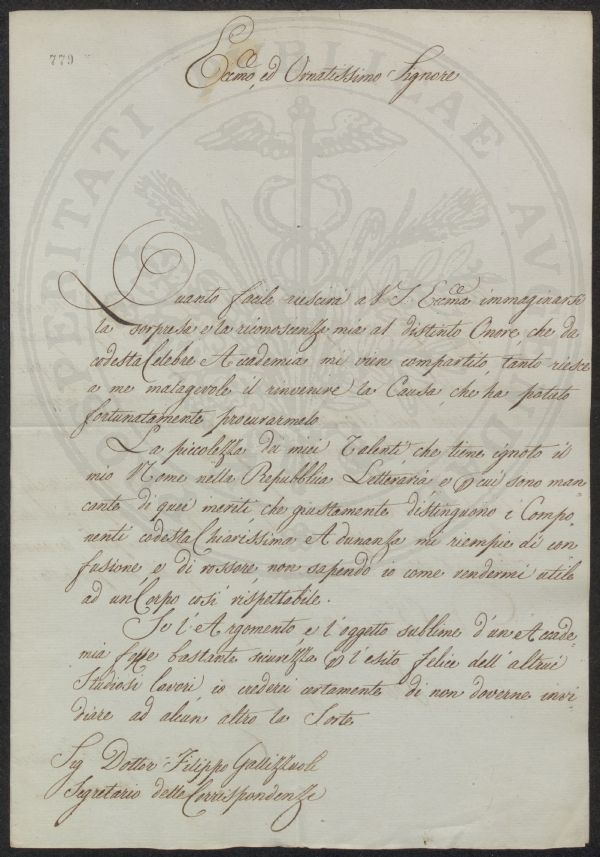 779
Eccmo, ed Ornatissimo Signore
Quanto facile riescirà a V.S. Eccma immaginarsi
la sorpresa e la riconoscenza mia al distinto Onore, che da
codesta Celebre Accademia mi vien compartito, tanto riesce
a me malagevole il rinvenire la Causa, che ha potuto
fortunatamente procurarmelo.
La piccolezza da miei Talenti che tiene ignoto il
mio Nome nella Repubblica Letteraria, e p cui sono man-
cante di quei meriti che giustamente distinguono i Compo-
nenti codesta Chiarissima Adunanza mi riempie di con
fusione, e di rossore, non sapendo io come rendermi utile
ad un Corpo così rispettabile.
Se l'Argomento e l'oggetto sublime d'un Accade-
mia fosse bastante sicurezza p l'esito felice dell'altrui
Studiosi lavori, io crederei certamente di non doverne invi-
diare ad alcun altro la Sorte
Sig Dottor Filippo Gallizzioli
Segretario delle Corrispondenze
OSPERITATI PUBLICAE AU